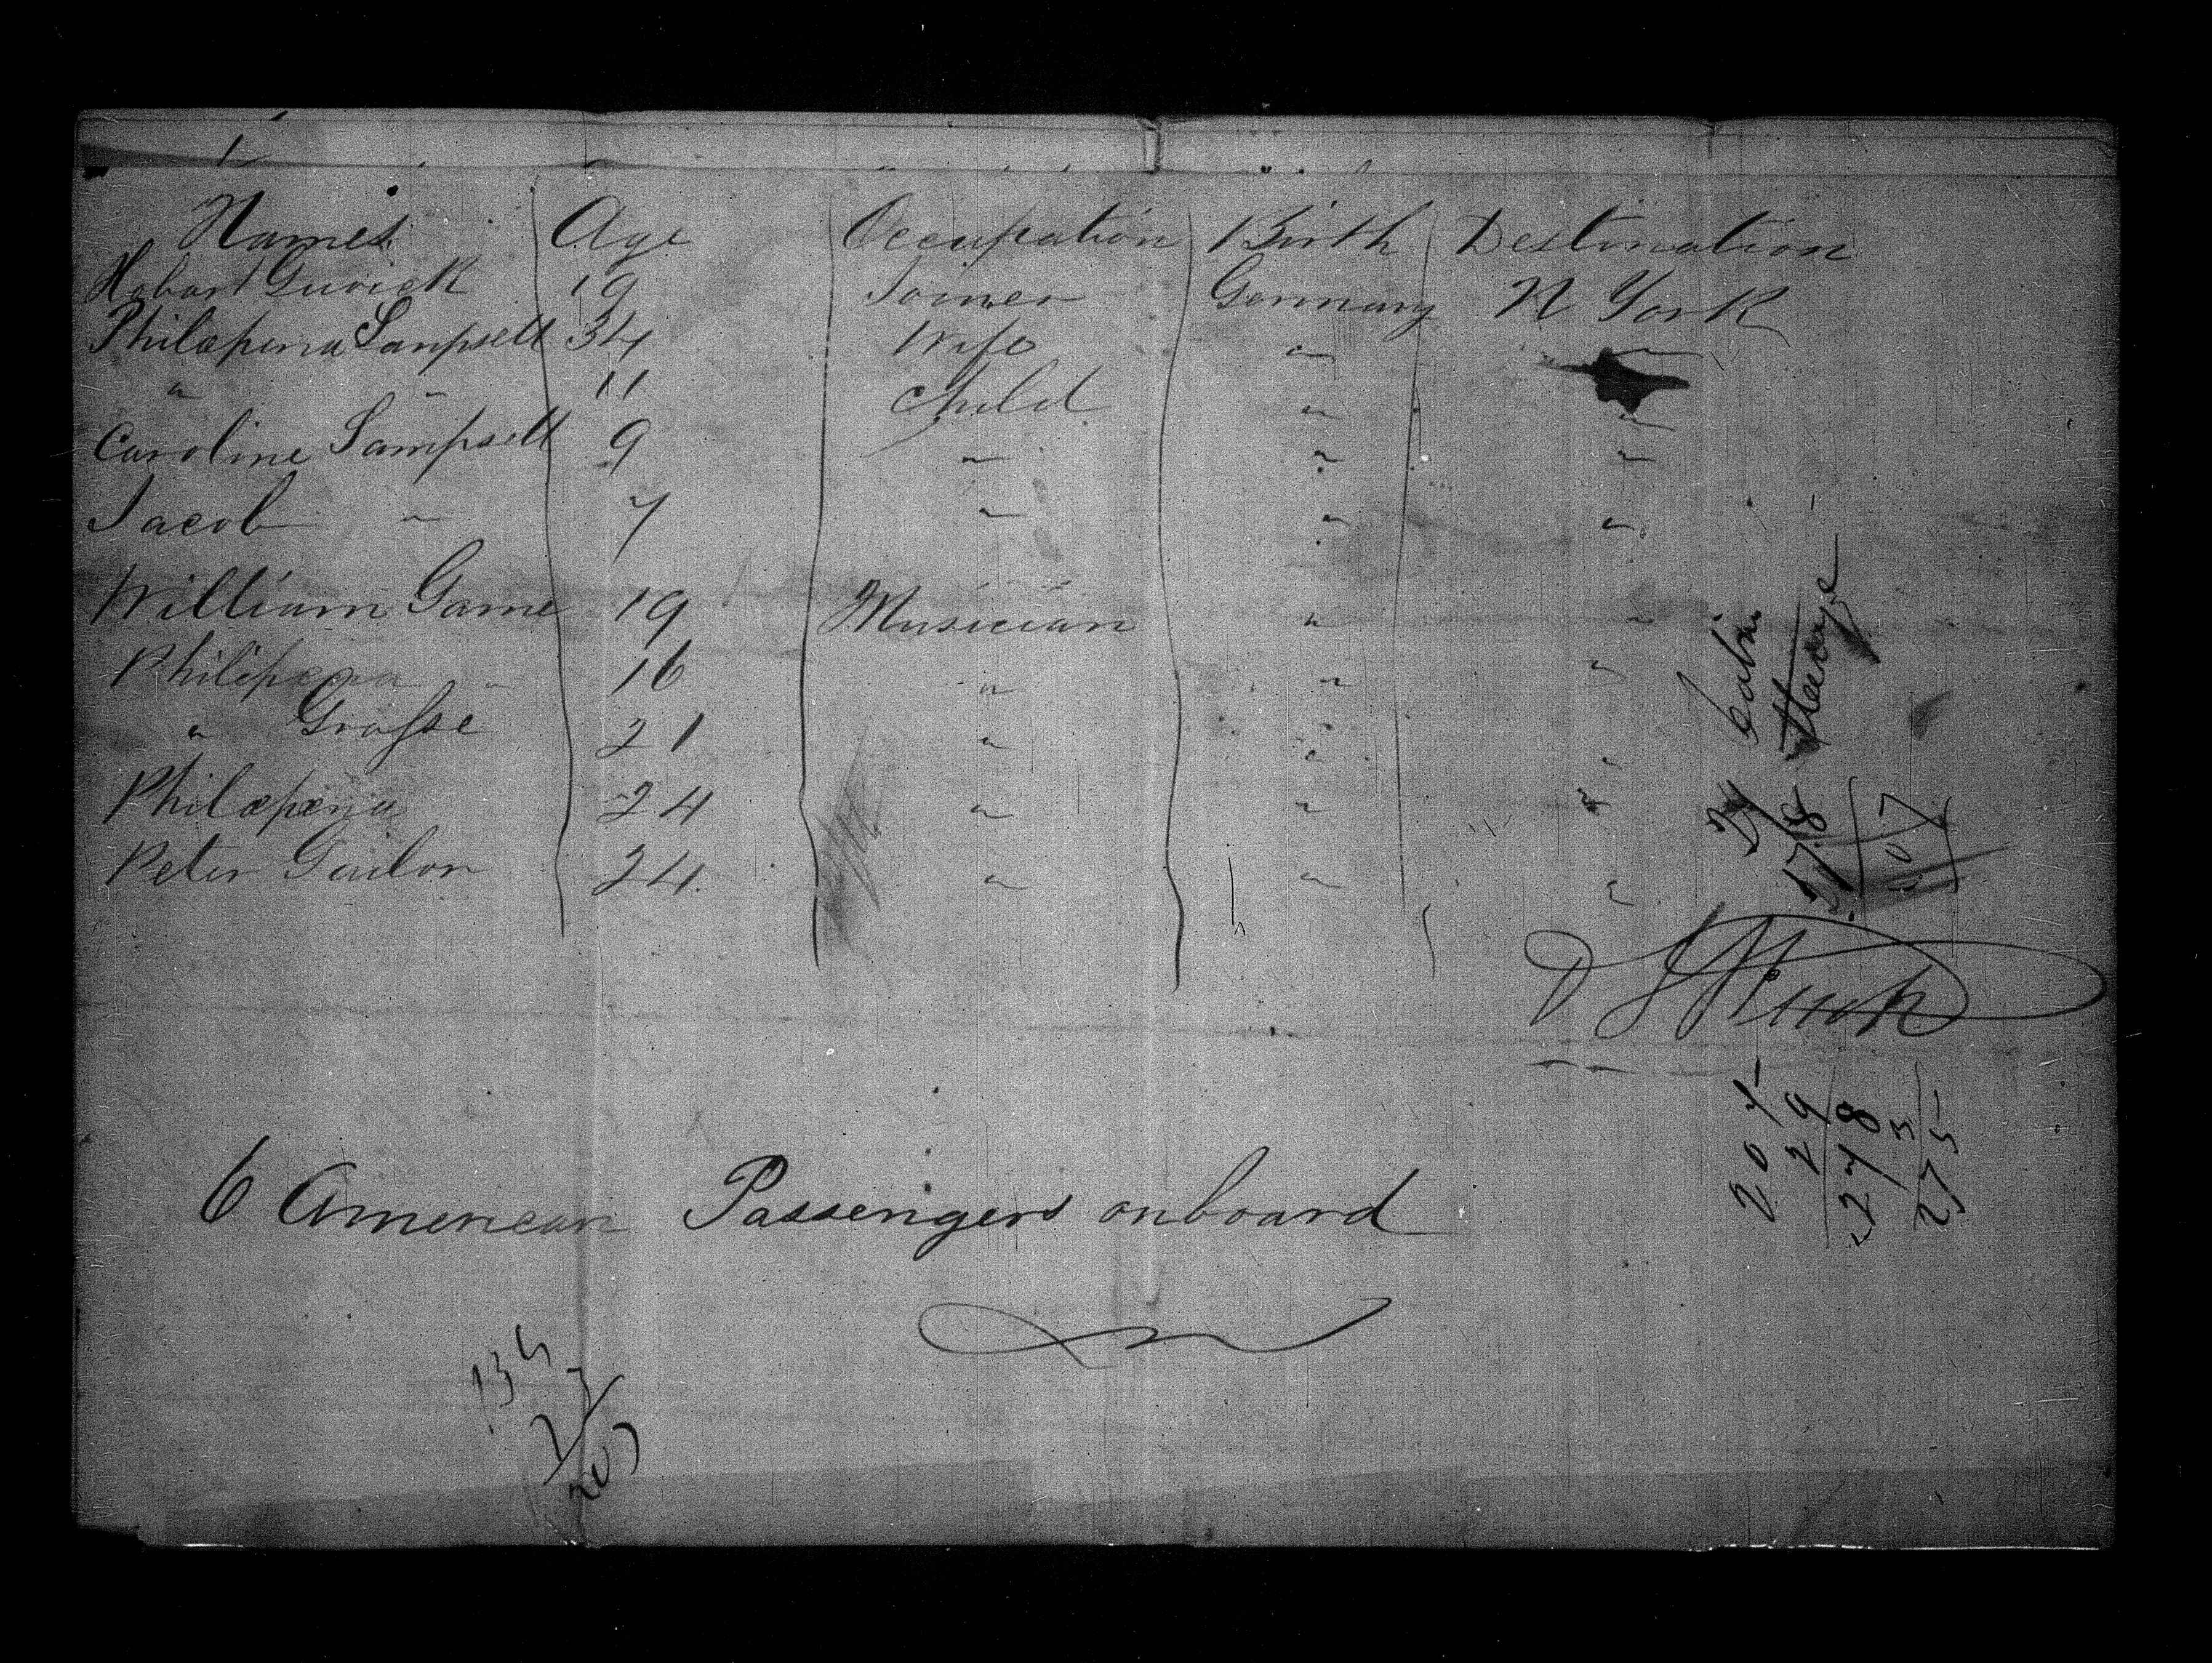 Names Age Occupation Birth Destination
Hobart Gurick 19 Joiner Germany N York
Philæpena Sampsell 34 Wife " "
" " 11 Child " "
Caroline Sampsell 9 " " "
Jacob " 7 " " "
William Game 19 Musician " "
Philipæna " 16 " " "
" Grafse 21 " " "
Philæpæna 24 " " "
Peter Gailor 24 " " "
29 Cabin
178 Steerage
207
D S
207
29
278
3
275
6 American Passengers onboard
134
207